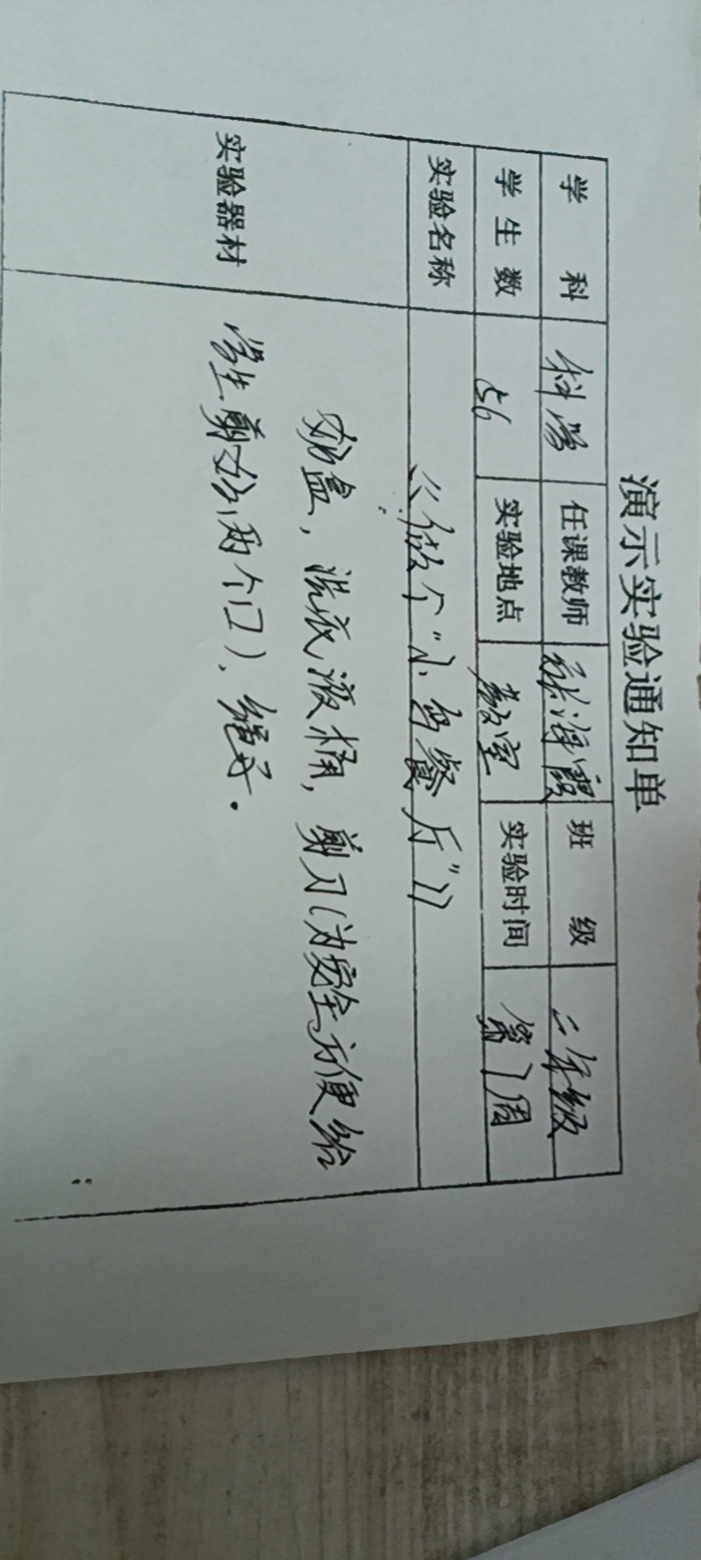 演示实验通知单
学 科 科学 任课教师 海霞 班 级 二年级
学生数 56 实验地点 教室 实验时间 第7周
实验名称 《做个"小鸟餐厅"》
实验器材 盒，洗衣液桶，剪刀(为安全方便给
学生剪好两个口)，绳子.